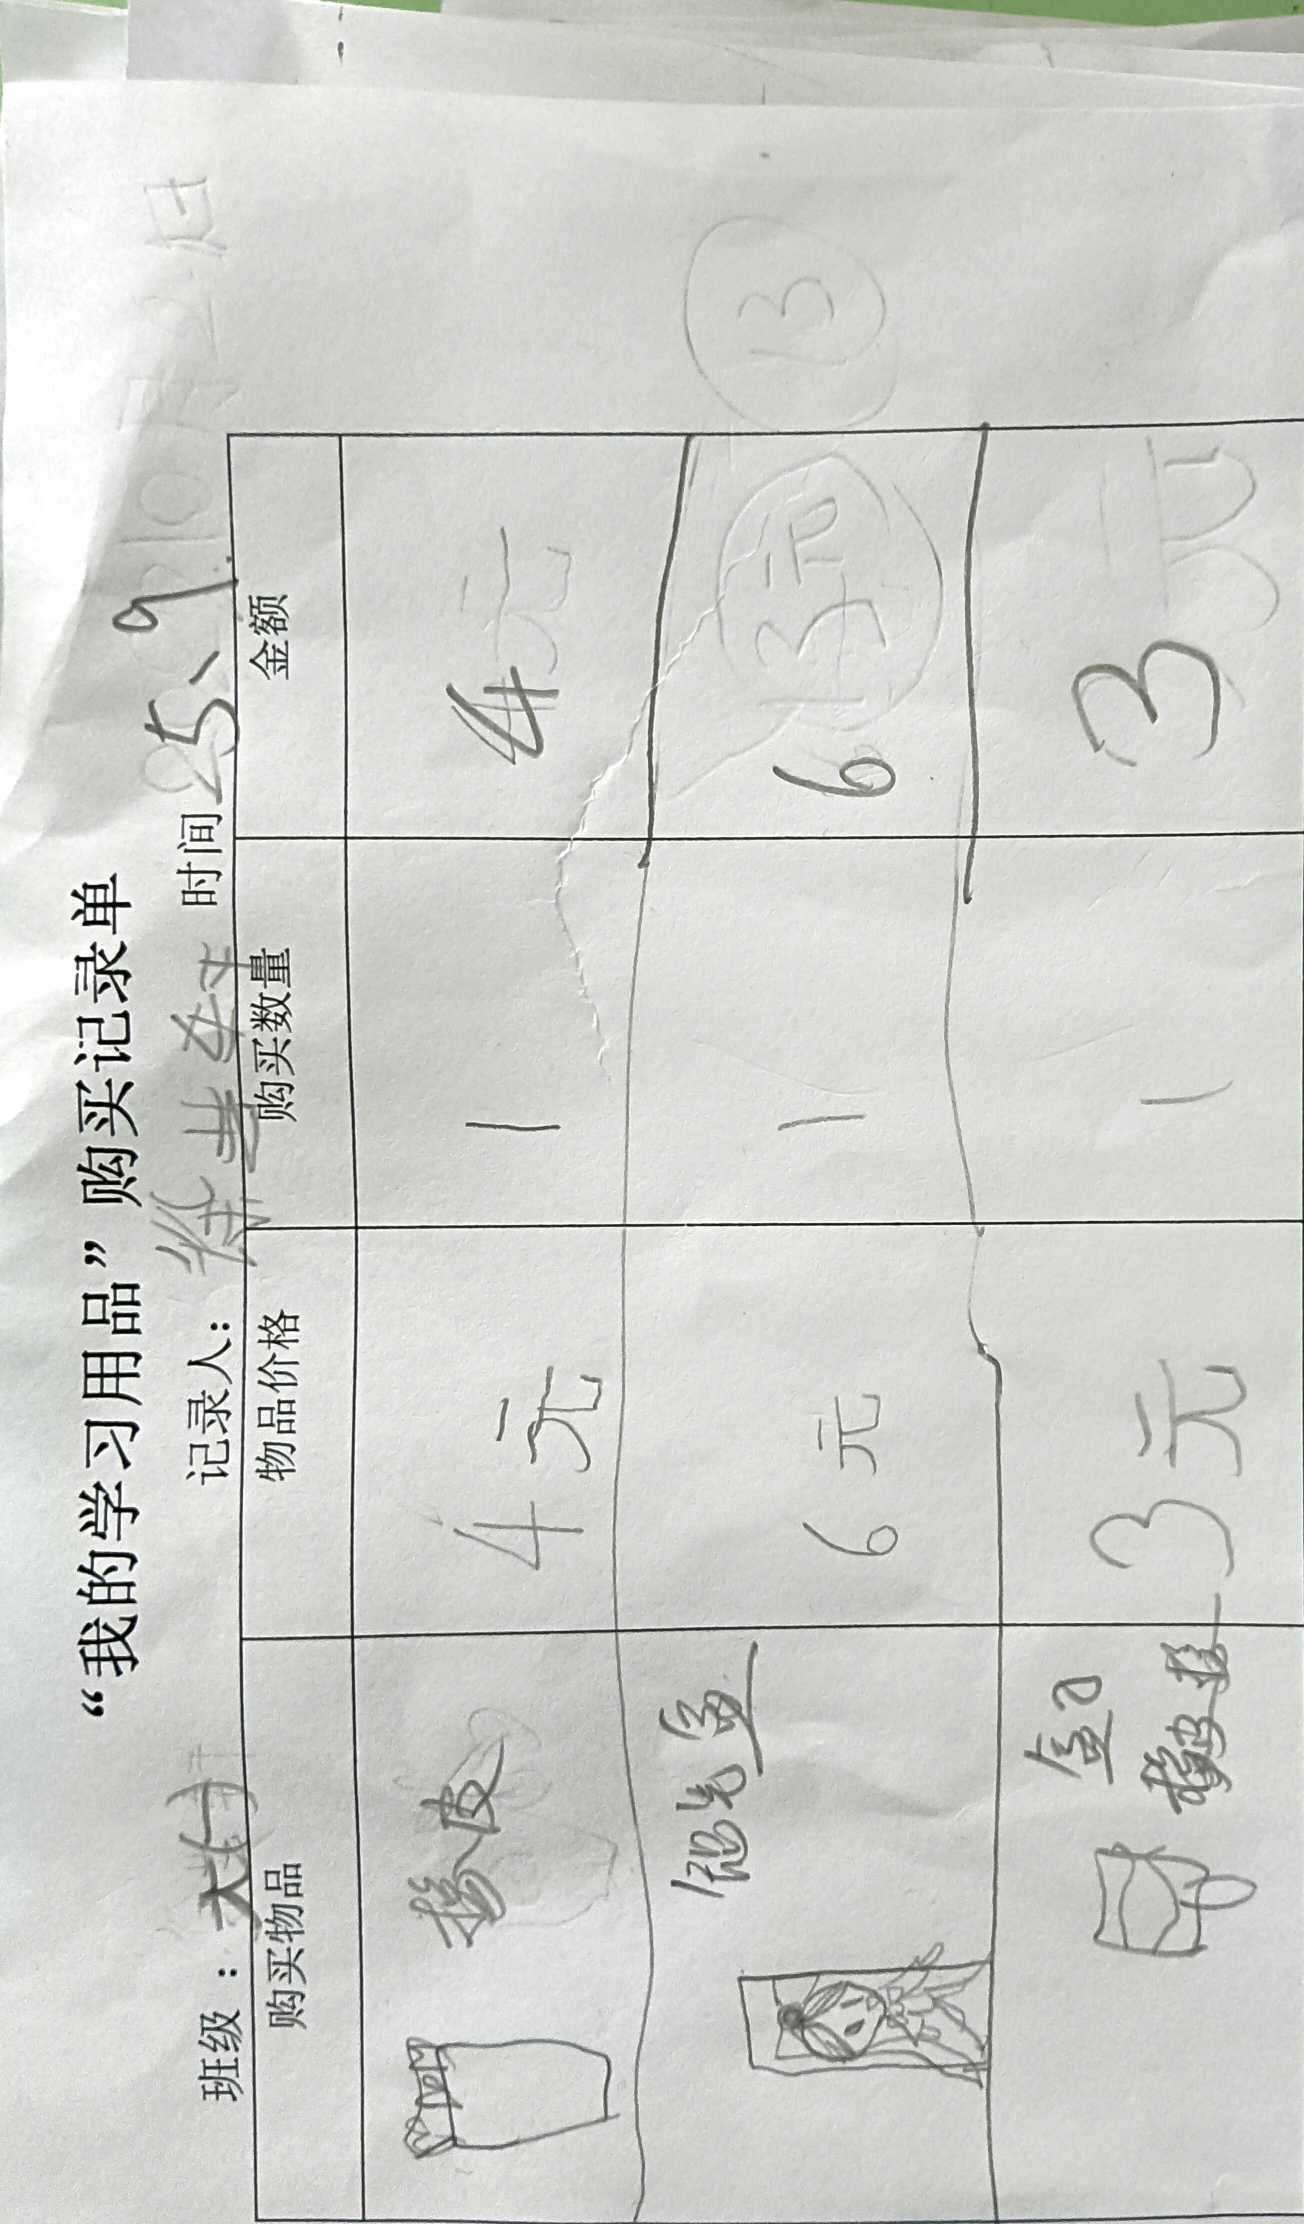 “我的学习用品”购买记录单
班级：大(一) 记录人： 时间 25、9.
购买物品 物品价格 购买数量 金额
橡皮 4元 1 4元
铅笔盒 6元 1 6 13元 13
3元 1 3元